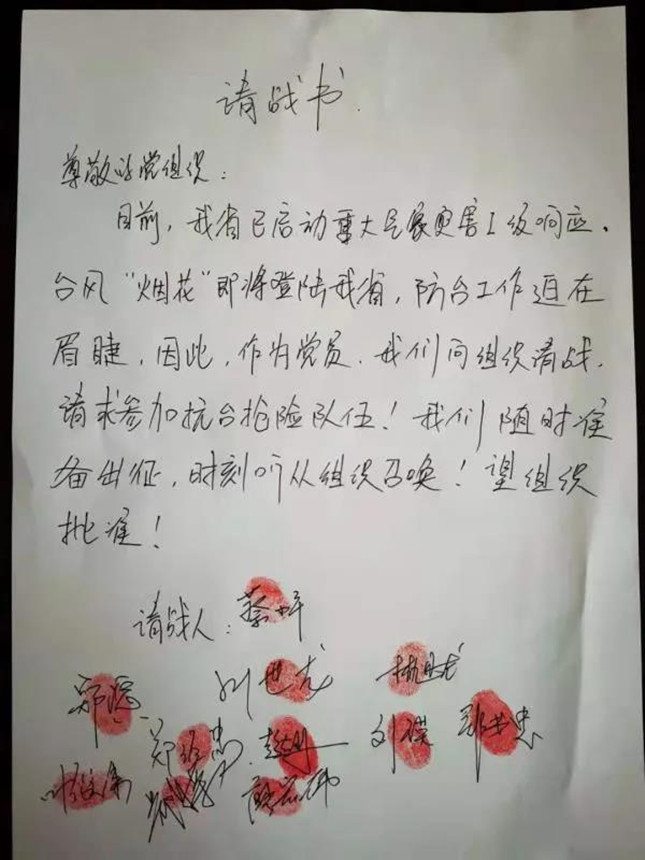 请战书
尊敬的党组织：
目前，我省已启动重大气象灾害I级响应。
台风“烟花”即将登陆我省，防台工作迫在
眉睫，因此，作为党员，我们向组织请战，
请求参加抗台抢险队伍！我们随时准
备出征，时刻听从组织召唤！望组织
批准！
请战人：蔡